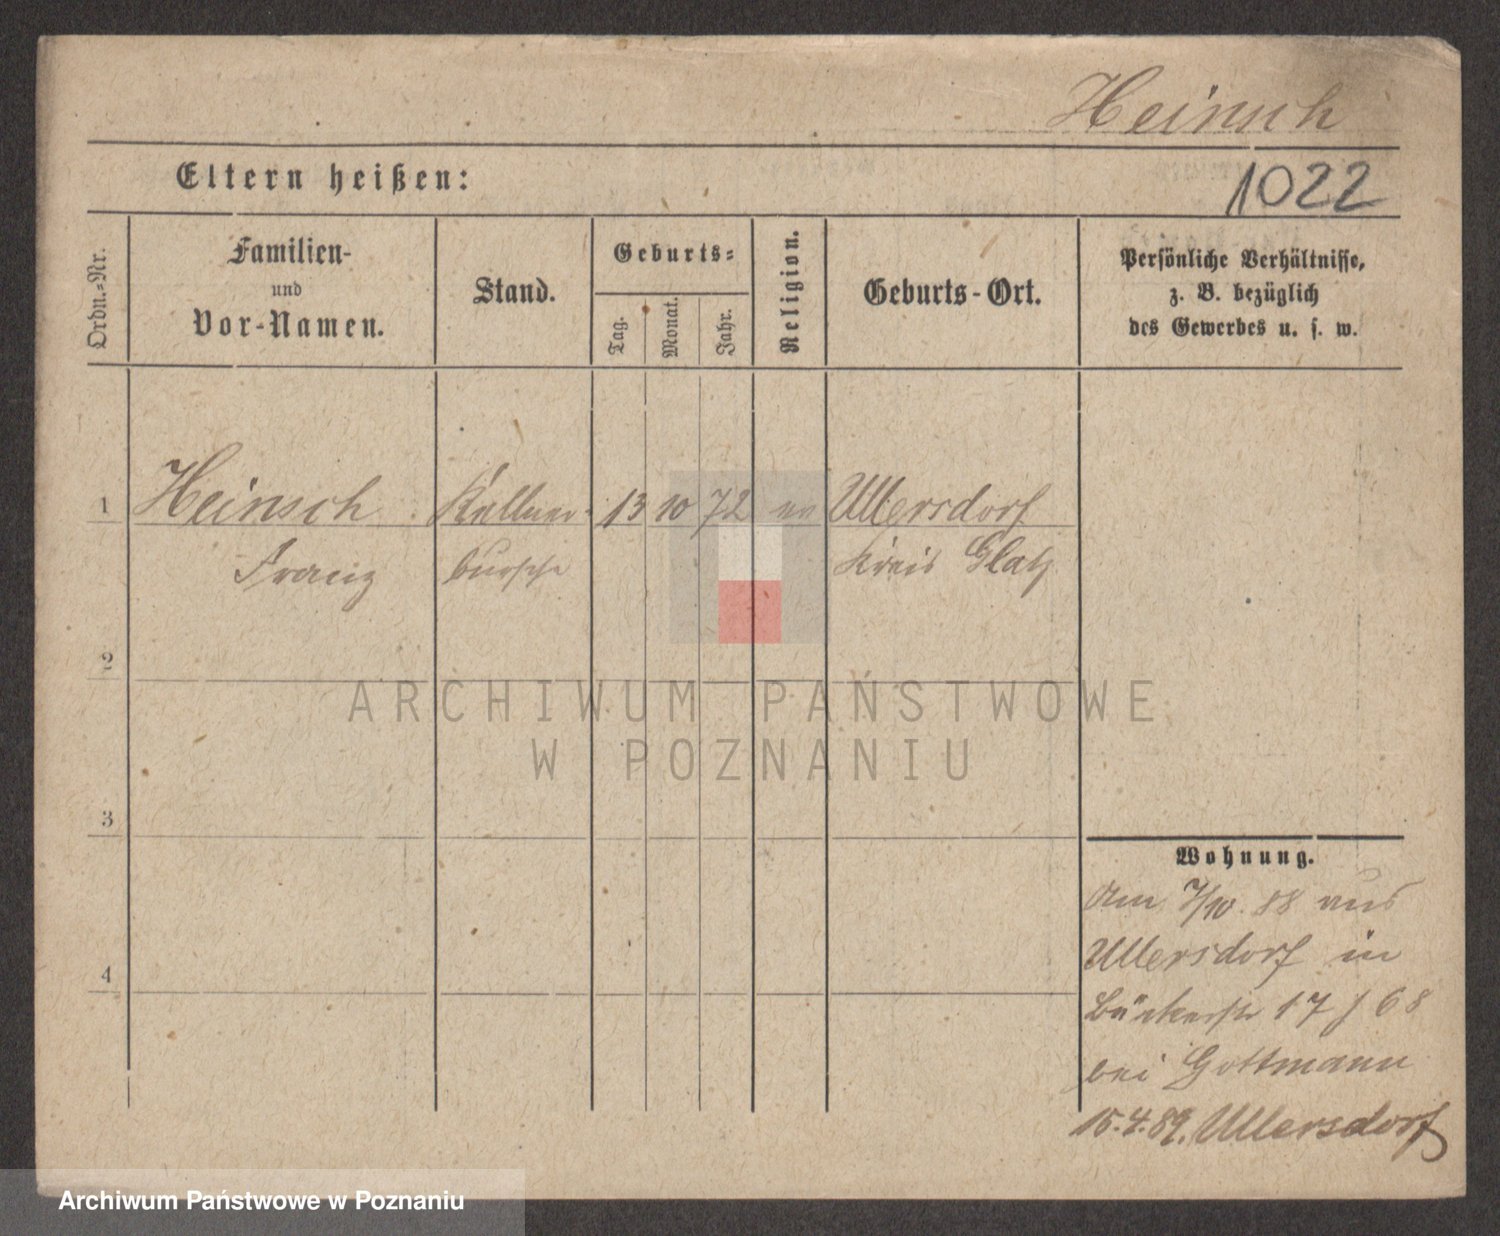 Heinsch
Eltern heißen:
1022
Ordn.-Nr.
Familien-
und
Vor-Namen.
Stand.
Geburts-
Tag.
Monat.
Jahr.
Religion.
Geburts-Ort.
Persönliche Verhältnisse,
z. B. bezüglich
des Gewerbes u. s. w.
1 Heinsch Kellner- 13 10 72 ev Ullersdorf
Franz bursche Kreis Glatz
2
3
4
Wohnung.
Am 7/10. 88 aus
Ullersdorf in
Bäckerstr 17 / 68
bei Gottmann
15.4.89. Ullersdorf
ARCHIWUM PAŃSTWOWE
W POZNANIU
Archiwum Państwowe w Poznaniu